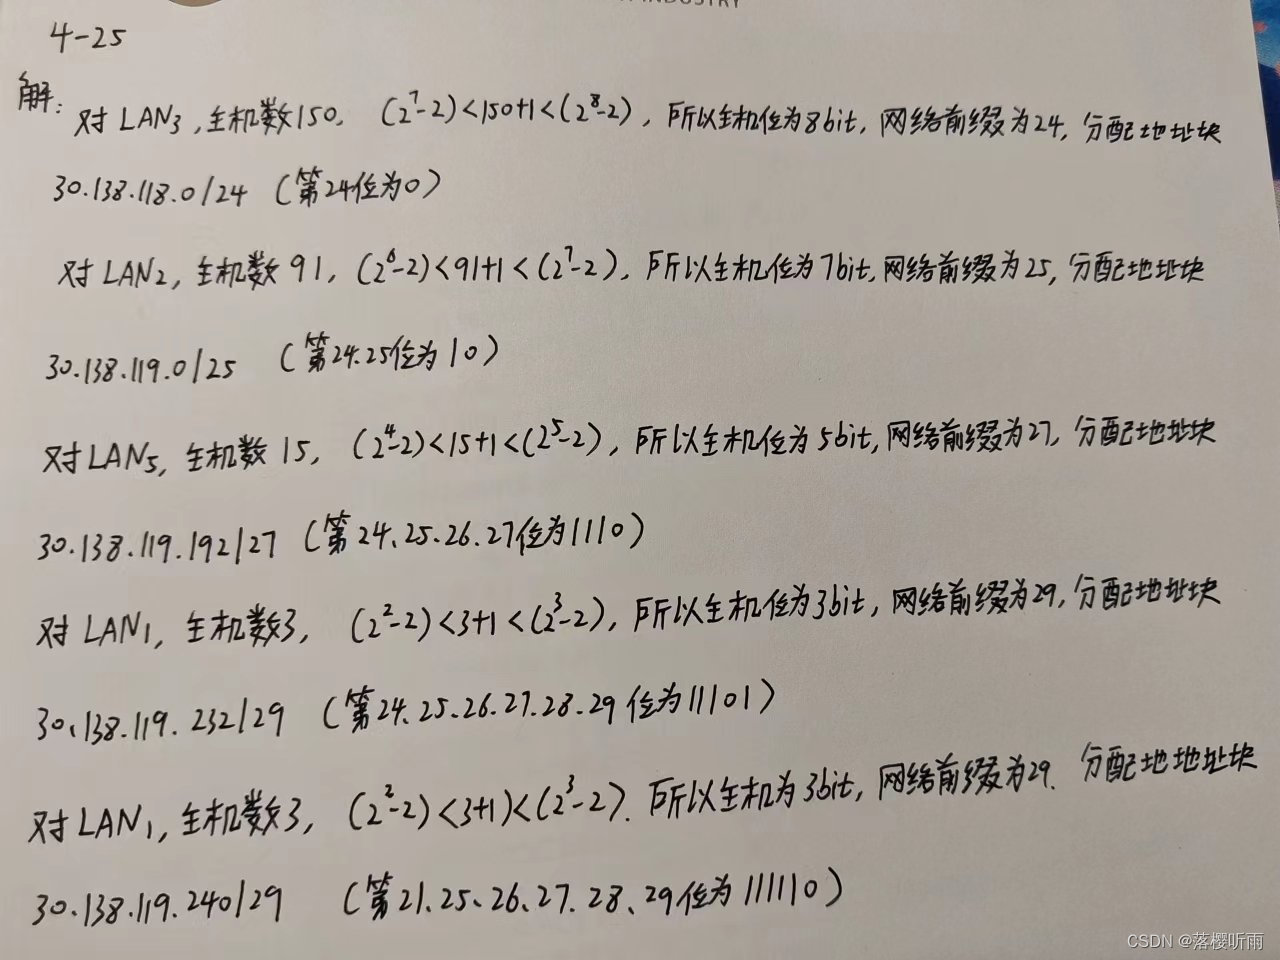 INDUSTRY
4-25
解: 对LAN3,主机数150, (2^7-2)<150+1<(2^8-2), 所以主机位为8bit, 网络前缀为24, 分配地址块
30.138.118.0/24 (第24位为0)
对LAN2, 主机数91, (2^6-2)<91+1<(2^7-2), 所以主机位为7bit, 网络前缀为25, 分配地址块
30.138.119.0/25 (第24.25位为10)
对LAN5, 主机数15, (2^4-2)<15+1<(2^5-2), 所以主机位为5bit, 网络前缀为27, 分配地址块
30.138.119.192/27 (第24、25.26.27位为1110)
对LAN1, 主机数3, (2^2-2)<3+1<(2^3-2), 所以主机位为3bit, 网络前缀为29, 分配地址块
30.138.119.232/29 (第24、25.26.27.28.29位为11101)
对LAN1, 主机数3, (2^2-2)<3+1)<(2^3-2). 所以主机为3bit, 网络前缀为29. 分配地地址块
30.138.119.240/29 (第21.25、26、27.28、29位为111110)
CSDN @落樱听雨